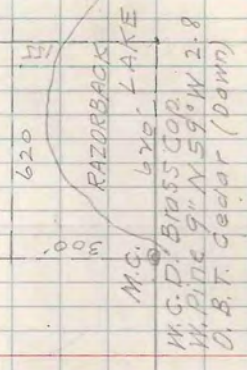 620
300'
RAZORBACK
LAKE
620'
M.C.
W.C.D. Brass Cap.
W. Pine 9" N 59° W 2.8
O.B.T. Cedar (Down)